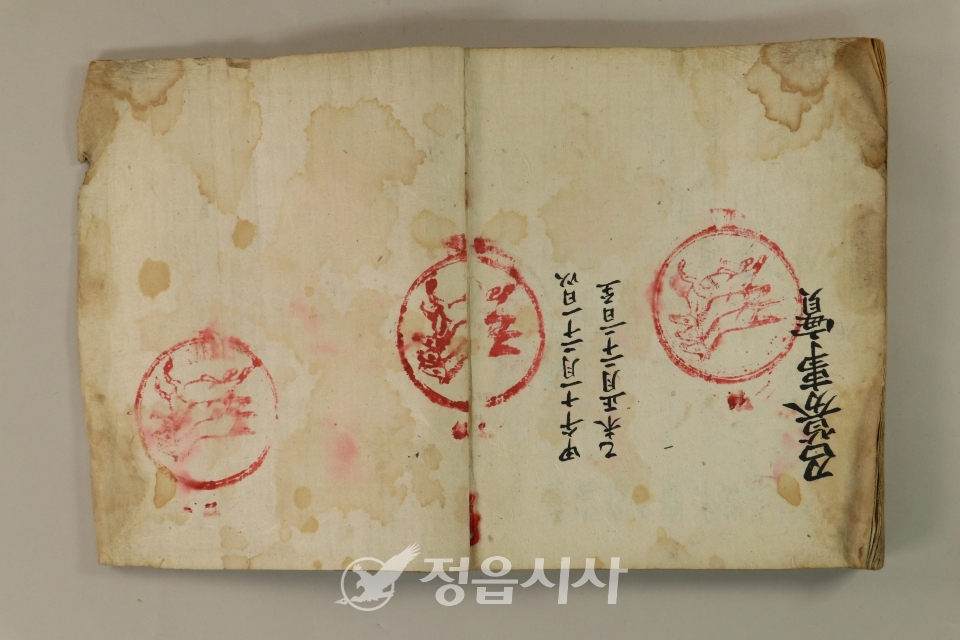 召募事實
甲午十一月二十一日以
乙未正月二十二日至
정읍시사